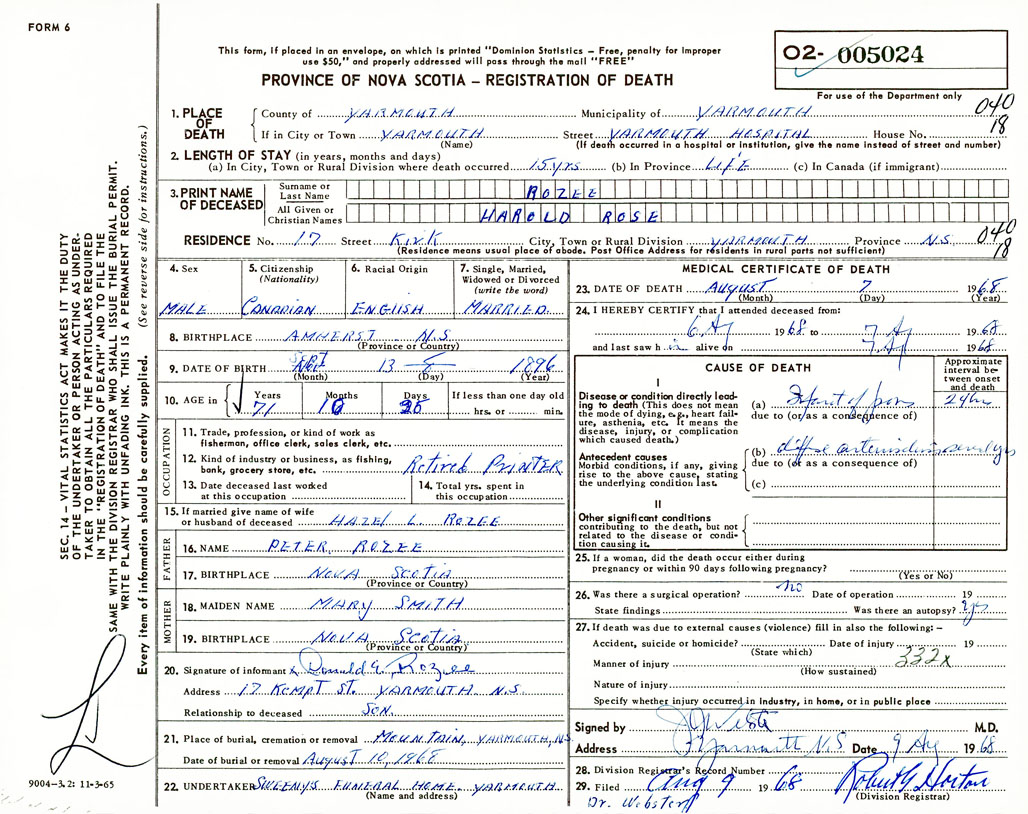 FORM 6
This form, if placed in an envelope, on which is printed "Dominion Statistics – Free, penalty for improper
use $50," and properly addressed will pass through the mail "FREE"
PROVINCE OF NOVA SCOTIA – REGISTRATION OF DEATH
02- 005024
For use of the Department only
040
18
1. PLACE OF DEATH
County of YARMOUTH Municipality of YARMOUTH
If in City or Town YARMOUTH Street YARMOUTH HOSPITAL House No.
(Name) (If death occurred in a hospital or institution, give the name instead of street and number)
2. LENGTH OF STAY (in years, months and days)
(a) In City, Town or Rural Division where death occurred 15 yrs. (b) In Province LIFE (c) In Canada (if immigrant)
3. PRINT NAME OF DECEASED
Surname or Last Name ROZEE
All Given or Christian Names HAROLD ROSE
RESIDENCE No. 17 Street Kirk City, Town or Rural Division YARMOUTH Province N.S.
(Residence means usual place of abode. Post Office Address for residents in rural parts not sufficient)
040
18
4. Sex MALE
5. Citizenship (Nationality) CANADIAN
6. Racial Origin ENGLISH
7. Single, Married, Widowed or Divorced (write the word) MARRIED.
8. BIRTHPLACE AMHERST N.S.
(Province or Country)
9. DATE OF BIRTH SEPT 13 1896
(Month) (Day) (Year)
10. AGE in Years Months Days If less than one day old
71 10 hrs. or min.
OCCUPATION
11. Trade, profession, or kind of work as
fisherman, office clerk, sales clerk, etc.
12. Kind of industry or business, as fishing,
bank, grocery store, etc. Retired PRINTER
13. Date deceased last worked
at this occupation
14. Total yrs. spent in
this occupation
15. If married give name of wife
or husband of deceased HAZEL L. ROZEE
FATHER
16. NAME PETER ROZEE
17. BIRTHPLACE NOVA SCOTIA
(Province or Country)
MOTHER
18. MAIDEN NAME MARY SMITH
19. BIRTHPLACE NOVA SCOTIA
(Province or Country)
20. Signature of informant x Ronald E. Rozee
Address 17 KEMPT ST. YARMOUTH N.S.
Relationship to deceased SON.
21. Place of burial, cremation or removal MOUNTAIN, YARMOUTH, N.S.
Date of burial or removal August 10, 1968
22. UNDERTAKER SWEENY'S FUNERAL HOME. YARMOUTH
(Name and address)
MEDICAL CERTIFICATE OF DEATH
23. DATE OF DEATH AUGUST 7 1968
(Month) (Day) (Year)
24. I HEREBY CERTIFY that I attended deceased from:
6 Ag 1968 to 7 Ag 1968
and last saw him alive on 7 Ag 1968
CAUSE OF DEATH
Approximate interval between onset and death
I
Disease or condition directly leading to death (This does not mean the mode of dying, e.g., heart failure, asthenia, etc. It means the disease, injury, or complication which caused death.)
(a) Infarct of pons 24 hrs
due to (or as a consequence of)
Antecedent causes
Morbid conditions, if any, giving rise to the above cause, stating the underlying condition last.
(b) yrs
due to (or as a consequence of)
(c)
II
Other significant conditions contributing to the death, but not related to the disease or condition causing it.
25. If a woman, did the death occur either during
pregnancy or within 90 days following pregnancy?
(Yes or No)
26. Was there a surgical operation? no Date of operation 19
State findings Was there an autopsy? yes
27. If death was due to external causes (violence) fill in also the following: –
Accident, suicide or homicide? Date of injury 19
(State which)
332x
Manner of injury
(How sustained)
Nature of injury
Specify whether injury occurred in industry, in home, or in public place
Signed by M.D.
Address Yarmouth N.S Date 9 Aug 1968
28. Division Registrar's Record Number
29. Filed Aug 9 1968 Robert G Horton
(Division Registrar)
Dr. Webster
SEC. 14 – VITAL STATISTICS ACT MAKES IT THE DUTY
OF THE UNDERTAKER OR PERSON ACTING AS UNDER-
TAKER TO OBTAIN ALL THE PARTICULARS REQUIRED
IN THE "REGISTRATION OF DEATH" AND TO FILE THE
SAME WITH THE DIVISION REGISTRAR WHO SHALL ISSUE THE BURIAL PERMIT.
WRITE PLAINLY WITH UNFADING INK. THIS IS A PERMANENT RECORD.
Every item of information should be carefully supplied. (See reverse side for instructions.)
9004–3.2: 11-3-65